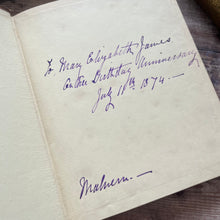 To Mary Elizabeth James
on her Birthday Anniversary
July 18th 1874.—
Malvern.—